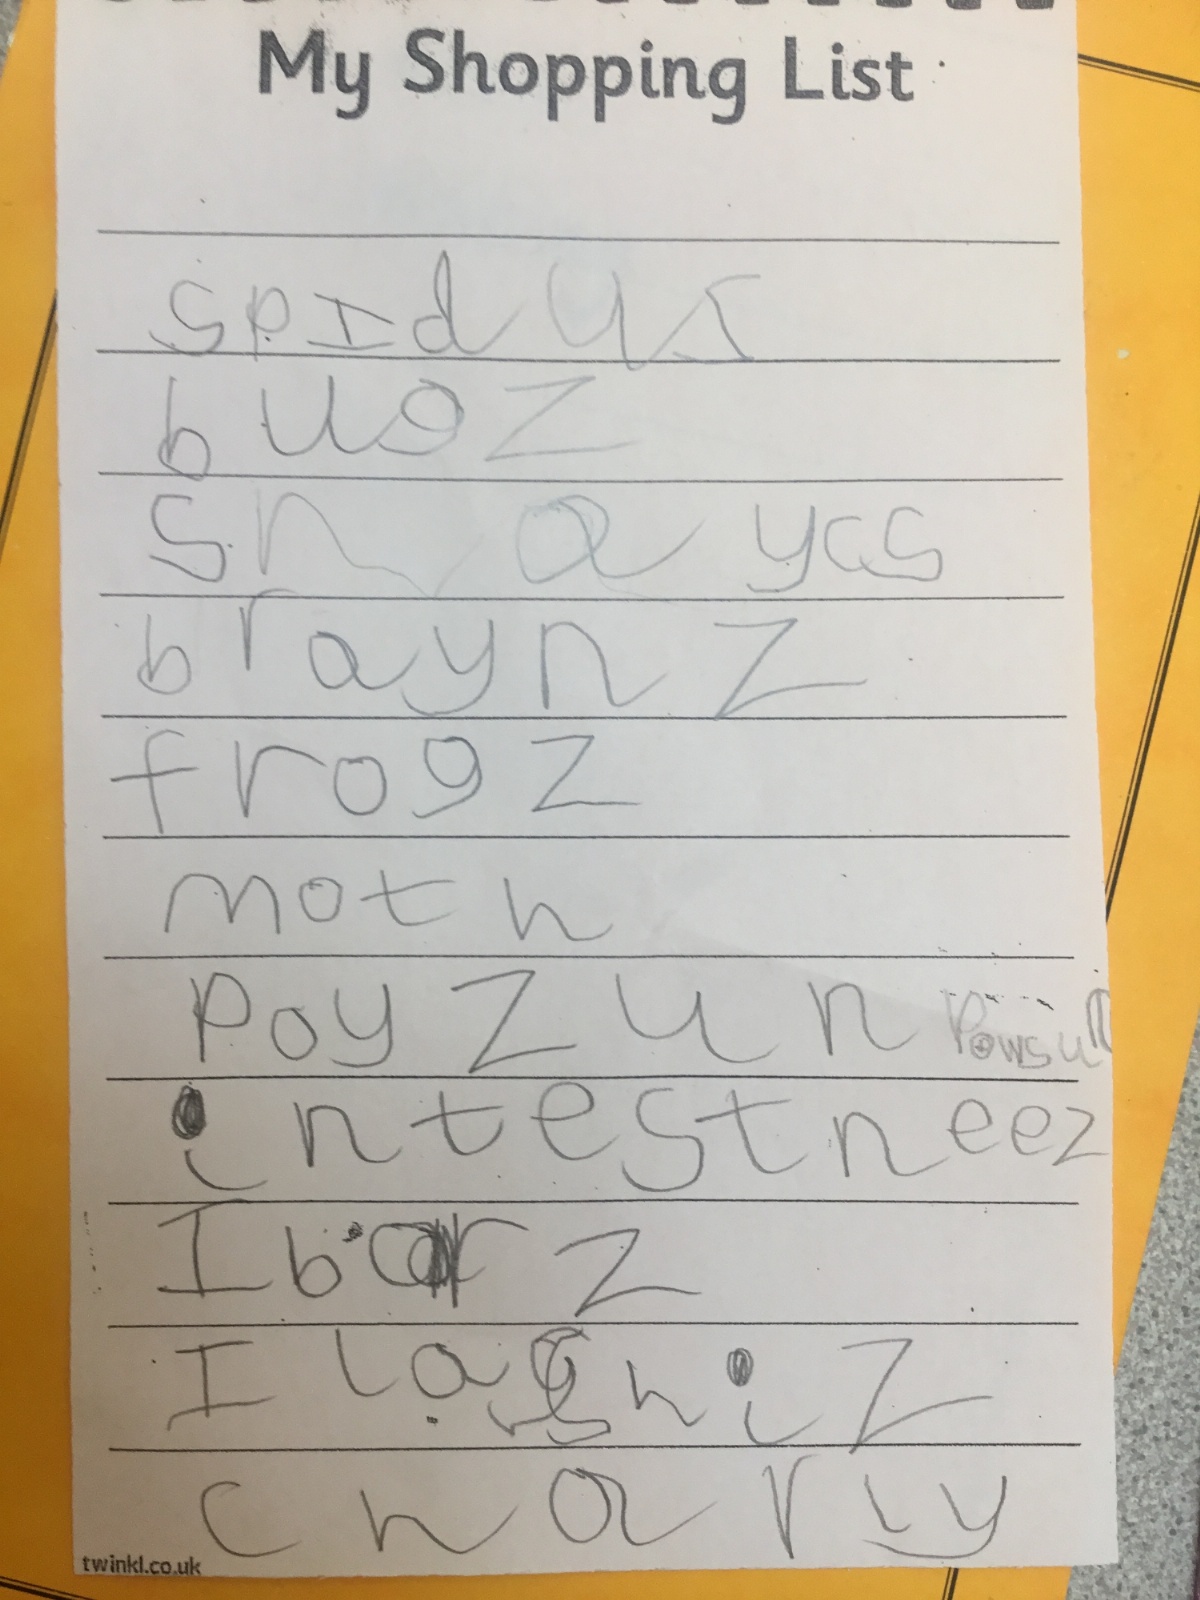 My Shopping List
spIdus
bugz
snaycs
braynz
frogz
moth
poyzun
intestneez
Iborz
charly
twinkl.co.uk